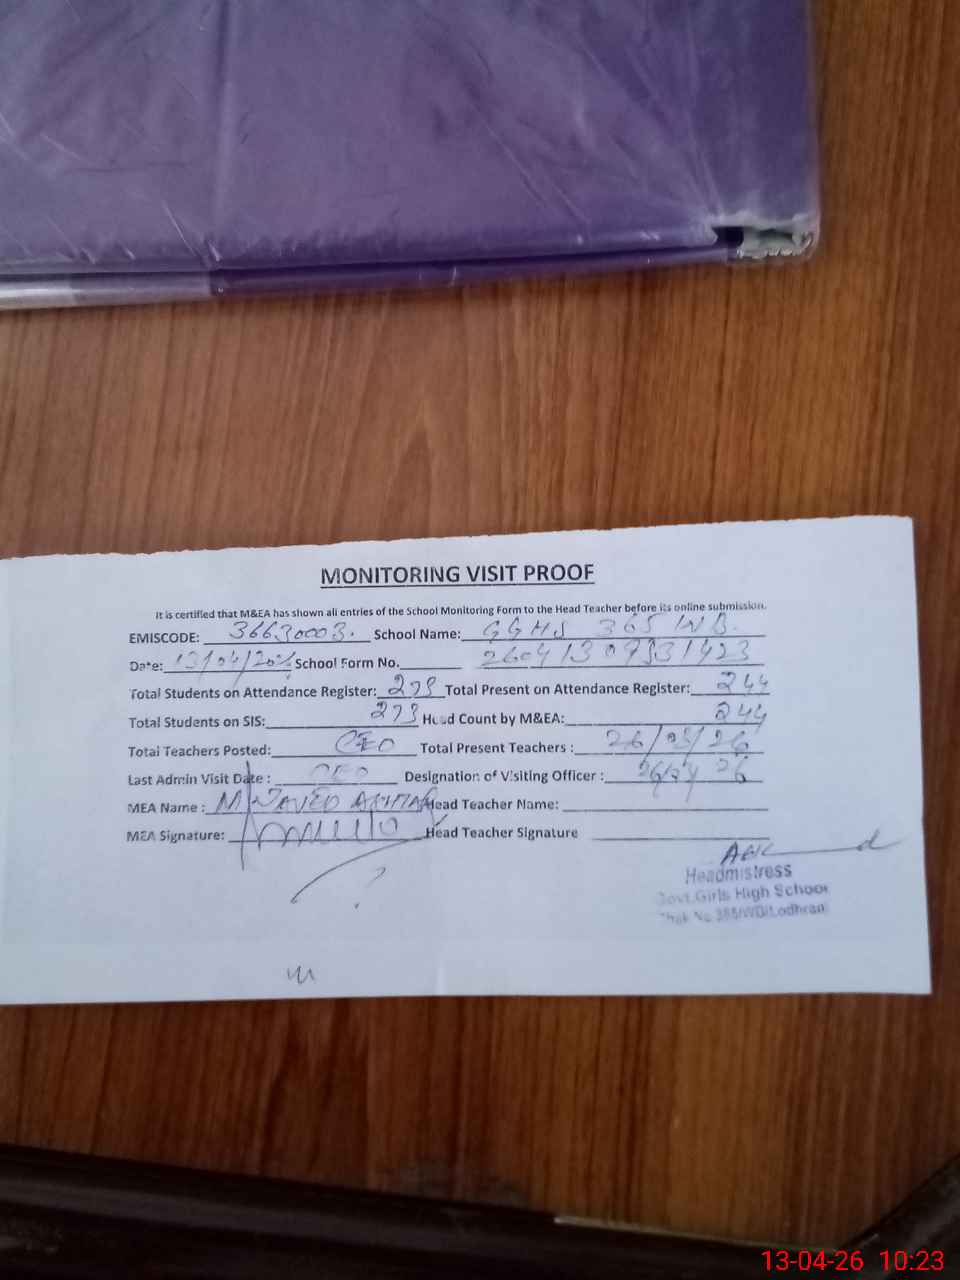 MONITORING VISIT PROOF
It is certified that M&EA has shown all entries of the School Monitoring Form to the Head Teacher before its online submission.
EMISCODE: 36630003. School Name: GGHS 365 WB.
Date: 13/04/20 School Form No. 2604130
Total Students on Attendance Register: 273 Total Present on Attendance Register: 244
Total Students on SIS: 273 Head Count by M&EA: 244
Total Teachers Posted: CEO Total Present Teachers : 26/03/26
Last Admin Visit Date : CEO Designation of Visiting Officer : 26
MEA Name : M JAVED Head Teacher Name:
MEA Signature: Head Teacher Signature
Headmistress
Govt.Girls High School
Chak No.365/WB/Lodhran
13-04-26 10:23